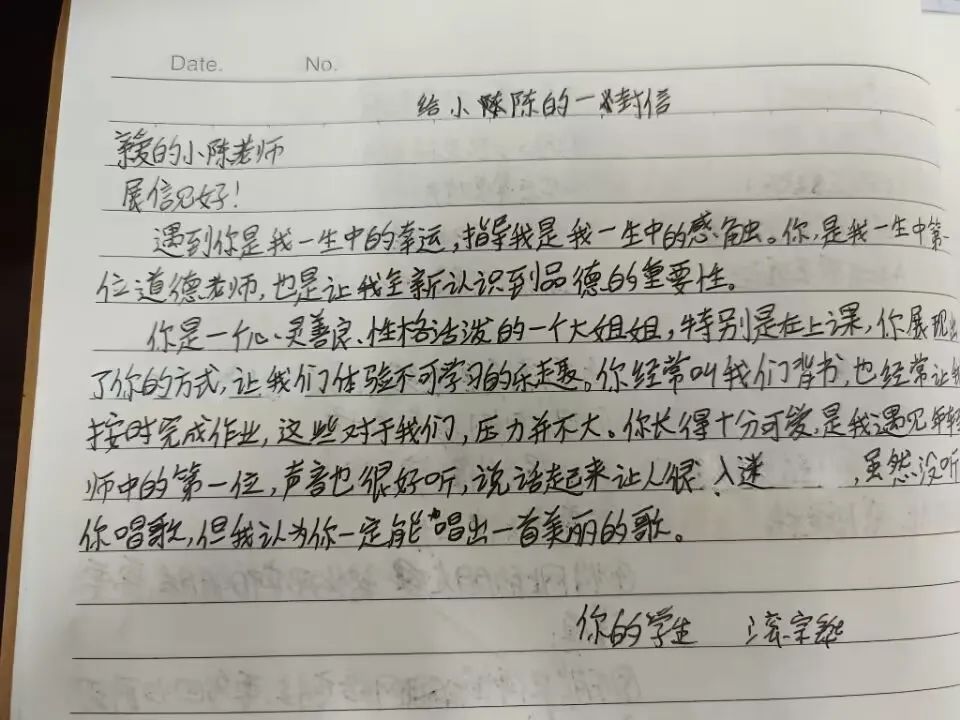 Date. No.
给小陈陈的一封信
亲爱的小陈老师
展信见好!
遇到你是我一生中的幸运,指导我是我一生中的感触。你,是我一生中第一
位道德老师,也是让我全新认识到品德的重要性。
你是一个心灵善良、性格活泼的一个大姐姐,特别是在上课,你展现出
了你的方式,让我们体验不可学习的乐趣。你经常叫我们背书,也经常让我
按时完成作业,这些对于我们,压力并不大。你长得十分可爱,是我遇见年轻
师中的第一位,声音也很好听,说话起来让人很入迷,虽然没听
你唱歌,但我认为你一定能唱出一首美丽的歌。
你的学生 宗